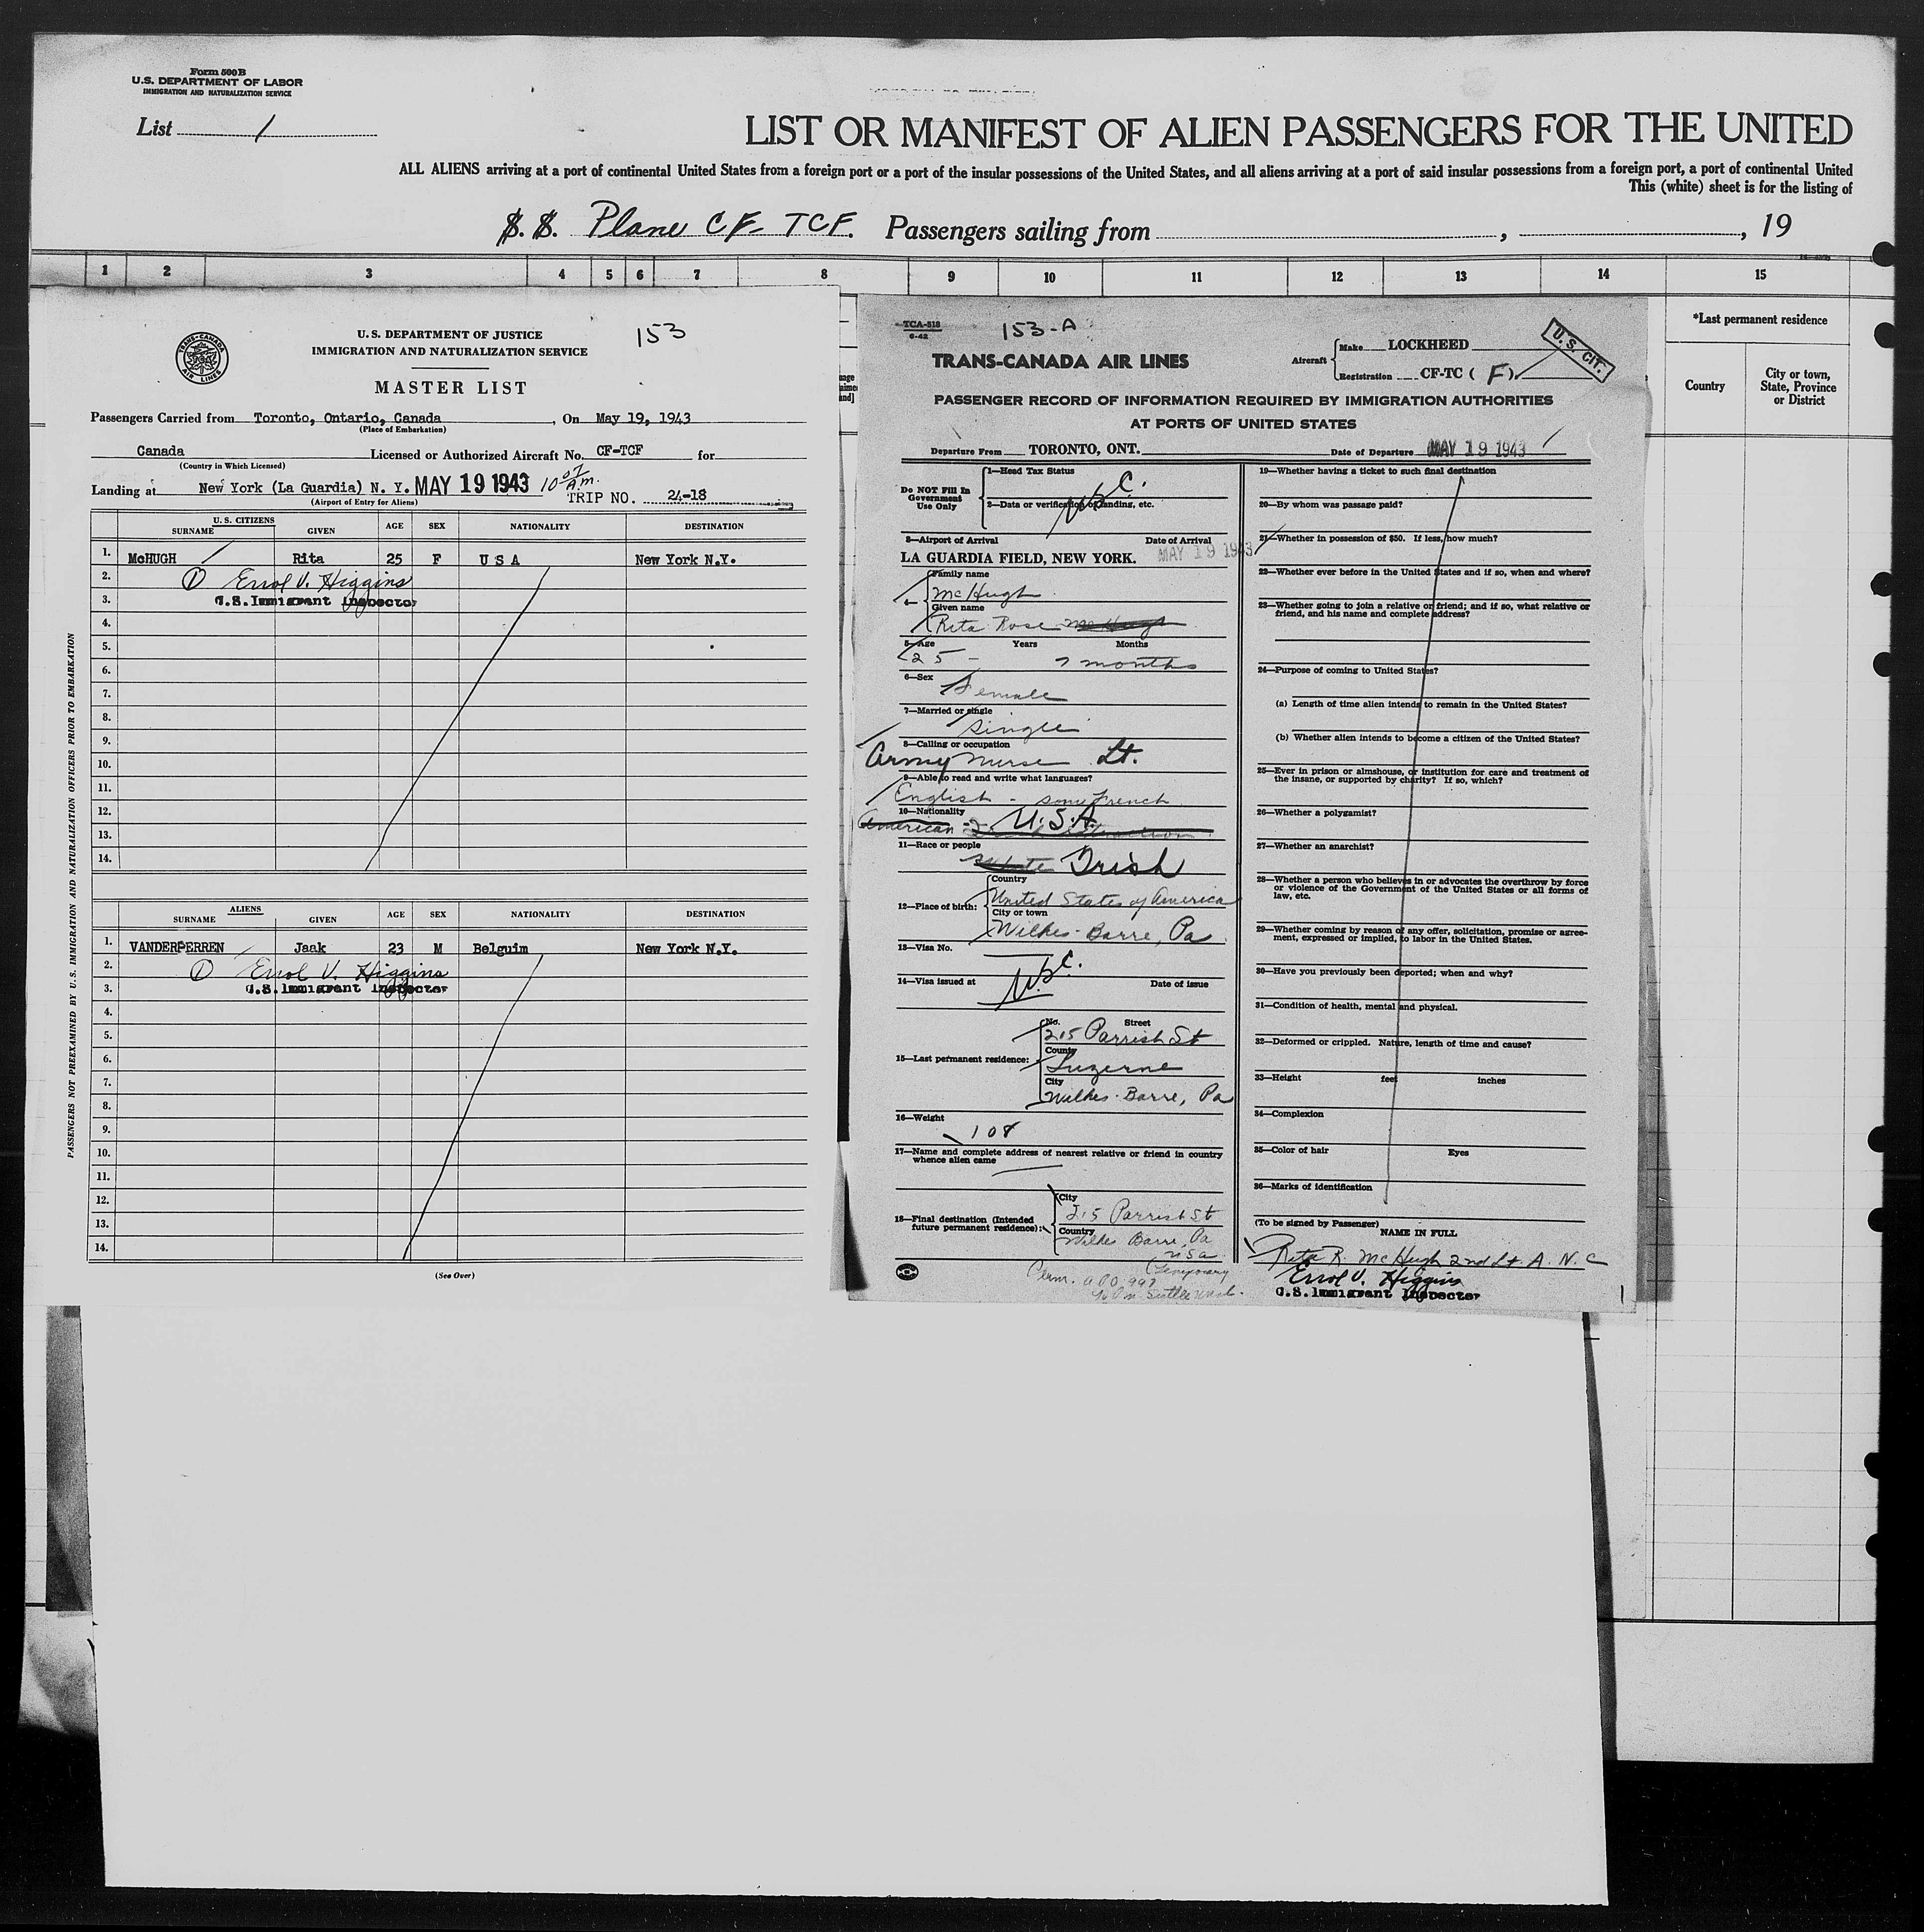 Form 500B
U.S. DEPARTMENT OF LABOR
IMMIGRATION AND NATURALIZATION SERVICE
List 1
LIST OR MANIFEST OF ALIEN PASSENGERS FOR THE UNITED
ALL ALIENS arriving at a port of continental United States from a foreign port or a port of the insular possessions of the United States, and all aliens arriving at a port of said insular possessions from a foreign port, a port of continental United
This (white) sheet is for the listing of
S. S. Plane CF- TCF. Passengers sailing from , , 19
1 2 3 4 5 6 7 8 9 10 11 12 13 14 15
*Last permanent residence
Country
City or town,
State, Province
or District
153
TRANS-CANADA
AIR LINES
U. S. DEPARTMENT OF JUSTICE
IMMIGRATION AND NATURALIZATION SERVICE
MASTER LIST
Passengers Carried from Toronto, Ontario, Canada , On May 19, 1943
(Place of Embarkation)
Canada Licensed or Authorized Aircraft No. CF-TCF for
(Country in Which Licensed)
Landing at New York (La Guardia) N. Y. MAY 19 1943 10 07 A.m. TRIP NO. 24-18
(Airport of Entry for Aliens)
U. S. CITIZENS
SURNAME GIVEN AGE SEX NATIONALITY DESTINATION
1. McHUGH Rita 25 F U S A New York N.Y.
2. 1 Errol V. Higgins
3. U.S. Immigrant Inspector
4.
5.
6.
7.
8.
9.
10.
11.
12.
13.
14.
ALIENS
SURNAME GIVEN AGE SEX NATIONALITY DESTINATION
1. VANDERPERREN Jaak 23 M Belguim New York N.Y.
2. 1 Errol V. Higgins
3. U.S. Immigrant Inspector
4.
5.
6.
7.
8.
9.
10.
11.
12.
13.
14.
(See Over)
PASSENGERS NOT PREEXAMINED BY U. S. IMMIGRATION AND NATURALIZATION OFFICERS PRIOR TO EMBARKATION
TCA-518
6-42
153-A
TRANS-CANADA AIR LINES
Aircraft Make LOCKHEED
Registration CF-TC ( F )
U. S. CIT.
PASSENGER RECORD OF INFORMATION REQUIRED BY IMMIGRATION AUTHORITIES
AT PORTS OF UNITED STATES
Departure From TORONTO, ONT. Date of Departure MAY 19 1943
Do NOT Fill In
Government
Use Only
1—Head Tax Status
USC.
2—Data or verification of landing, etc.
3—Airport of Arrival Date of Arrival
LA GUARDIA FIELD, NEW YORK. MAY 19 1943
4— Family name
McHugh
Given name
Rita Rose McHugh
5—Age Years Months
25 - 7 months
6—Sex
Female
7—Married or single
Single
8—Calling or occupation
Army Nurse Lt.
9—Able to read and write what languages?
English - some French
10—Nationality
American U.S.A.
11—Race or people
White Irish
12—Place of birth:
Country
United States of America
City or town
Wilkes-Barre, Pa
13—Visa No.
USC.
14—Visa issued at Date of issue
15—Last permanent residence:
No. Street
215 Parrish St
County
Luzerne
City
Wilkes-Barre, Pa
16—Weight
108
17—Name and complete address of nearest relative or friend in country
whence alien came
18—Final destination (Intended
future permanent residence):
City
215 Parrish St
Country
Wilkes Barre, Pa
USA
(Temporary
Perm. APO 997
19—Whether having a ticket to such final destination
20—By whom was passage paid?
21—Whether in possession of $50. If less, how much?
22—Whether ever before in the United States and if so, when and where?
23—Whether going to join a relative or friend; and if so, what relative or
friend, and his name and complete address?
24—Purpose of coming to United States?
(a) Length of time alien intends to remain in the United States?
(b) Whether alien intends to become a citizen of the United States?
25—Ever in prison or almshouse, or institution for care and treatment of
the insane, or supported by charity? If so, which?
26—Whether a polygamist?
27—Whether an anarchist?
28—Whether a person who believes in or advocates the overthrow by force
or violence of the Government of the United States or all forms of
law, etc.
29—Whether coming by reason of any offer, solicitation, promise or agree-
ment, expressed or implied, to labor in the United States.
30—Have you previously been deported; when and why?
31—Condition of health, mental and physical.
32—Deformed or crippled. Nature, length of time and cause?
33—Height feet inches
34—Complexion
35—Color of hair Eyes
36—Marks of identification
(To be signed by Passenger)
NAME IN FULL
Rita R. McHugh 2nd Lt. A. N. C
Errol V. Higgins
U.S. Immigrant Inspector